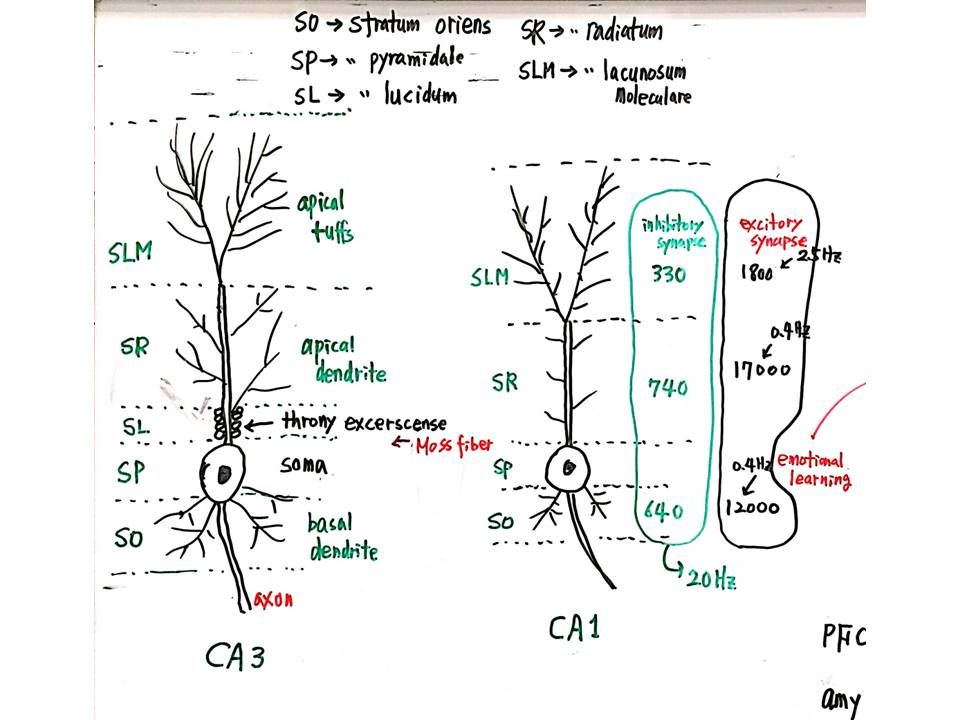 SO → stratum oriens
SP → " pyramidale
SL → " lucidum
SR → " radiatum
SLM → " lacunosum
Moleculare
SLM
apical
tuffs
SR
apical
dendrite
SL
← throny excerscense
← Moss fiber
SP
soma
SO
basal
dendrite
axon
CA3
SLM
SR
SP
SO
CA1
inhibitory
synapse
330
740
640
→ 20Hz
excitory
synapse
25Hz
1800
0.4Hz
17000
0.4Hz
12000
emotional
learning
PFC
amy